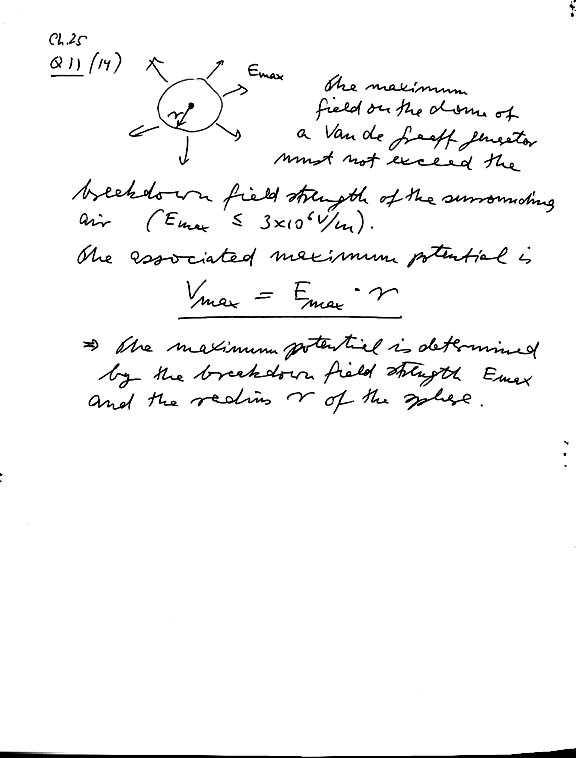 Ch.25
Q 11 (14)
Emax
r
The maximum
field on the dome of
a Van de Graaff generator
must not exceed the
breakdown field strength of the surrounding
air (Emax ≤ 3x10⁶ V/m).
The associated maximum potential is
Vmax = Emax · r
⇒ The maximum potential is determined
by the breakdown field strength Emax
and the radius r of the sphere.